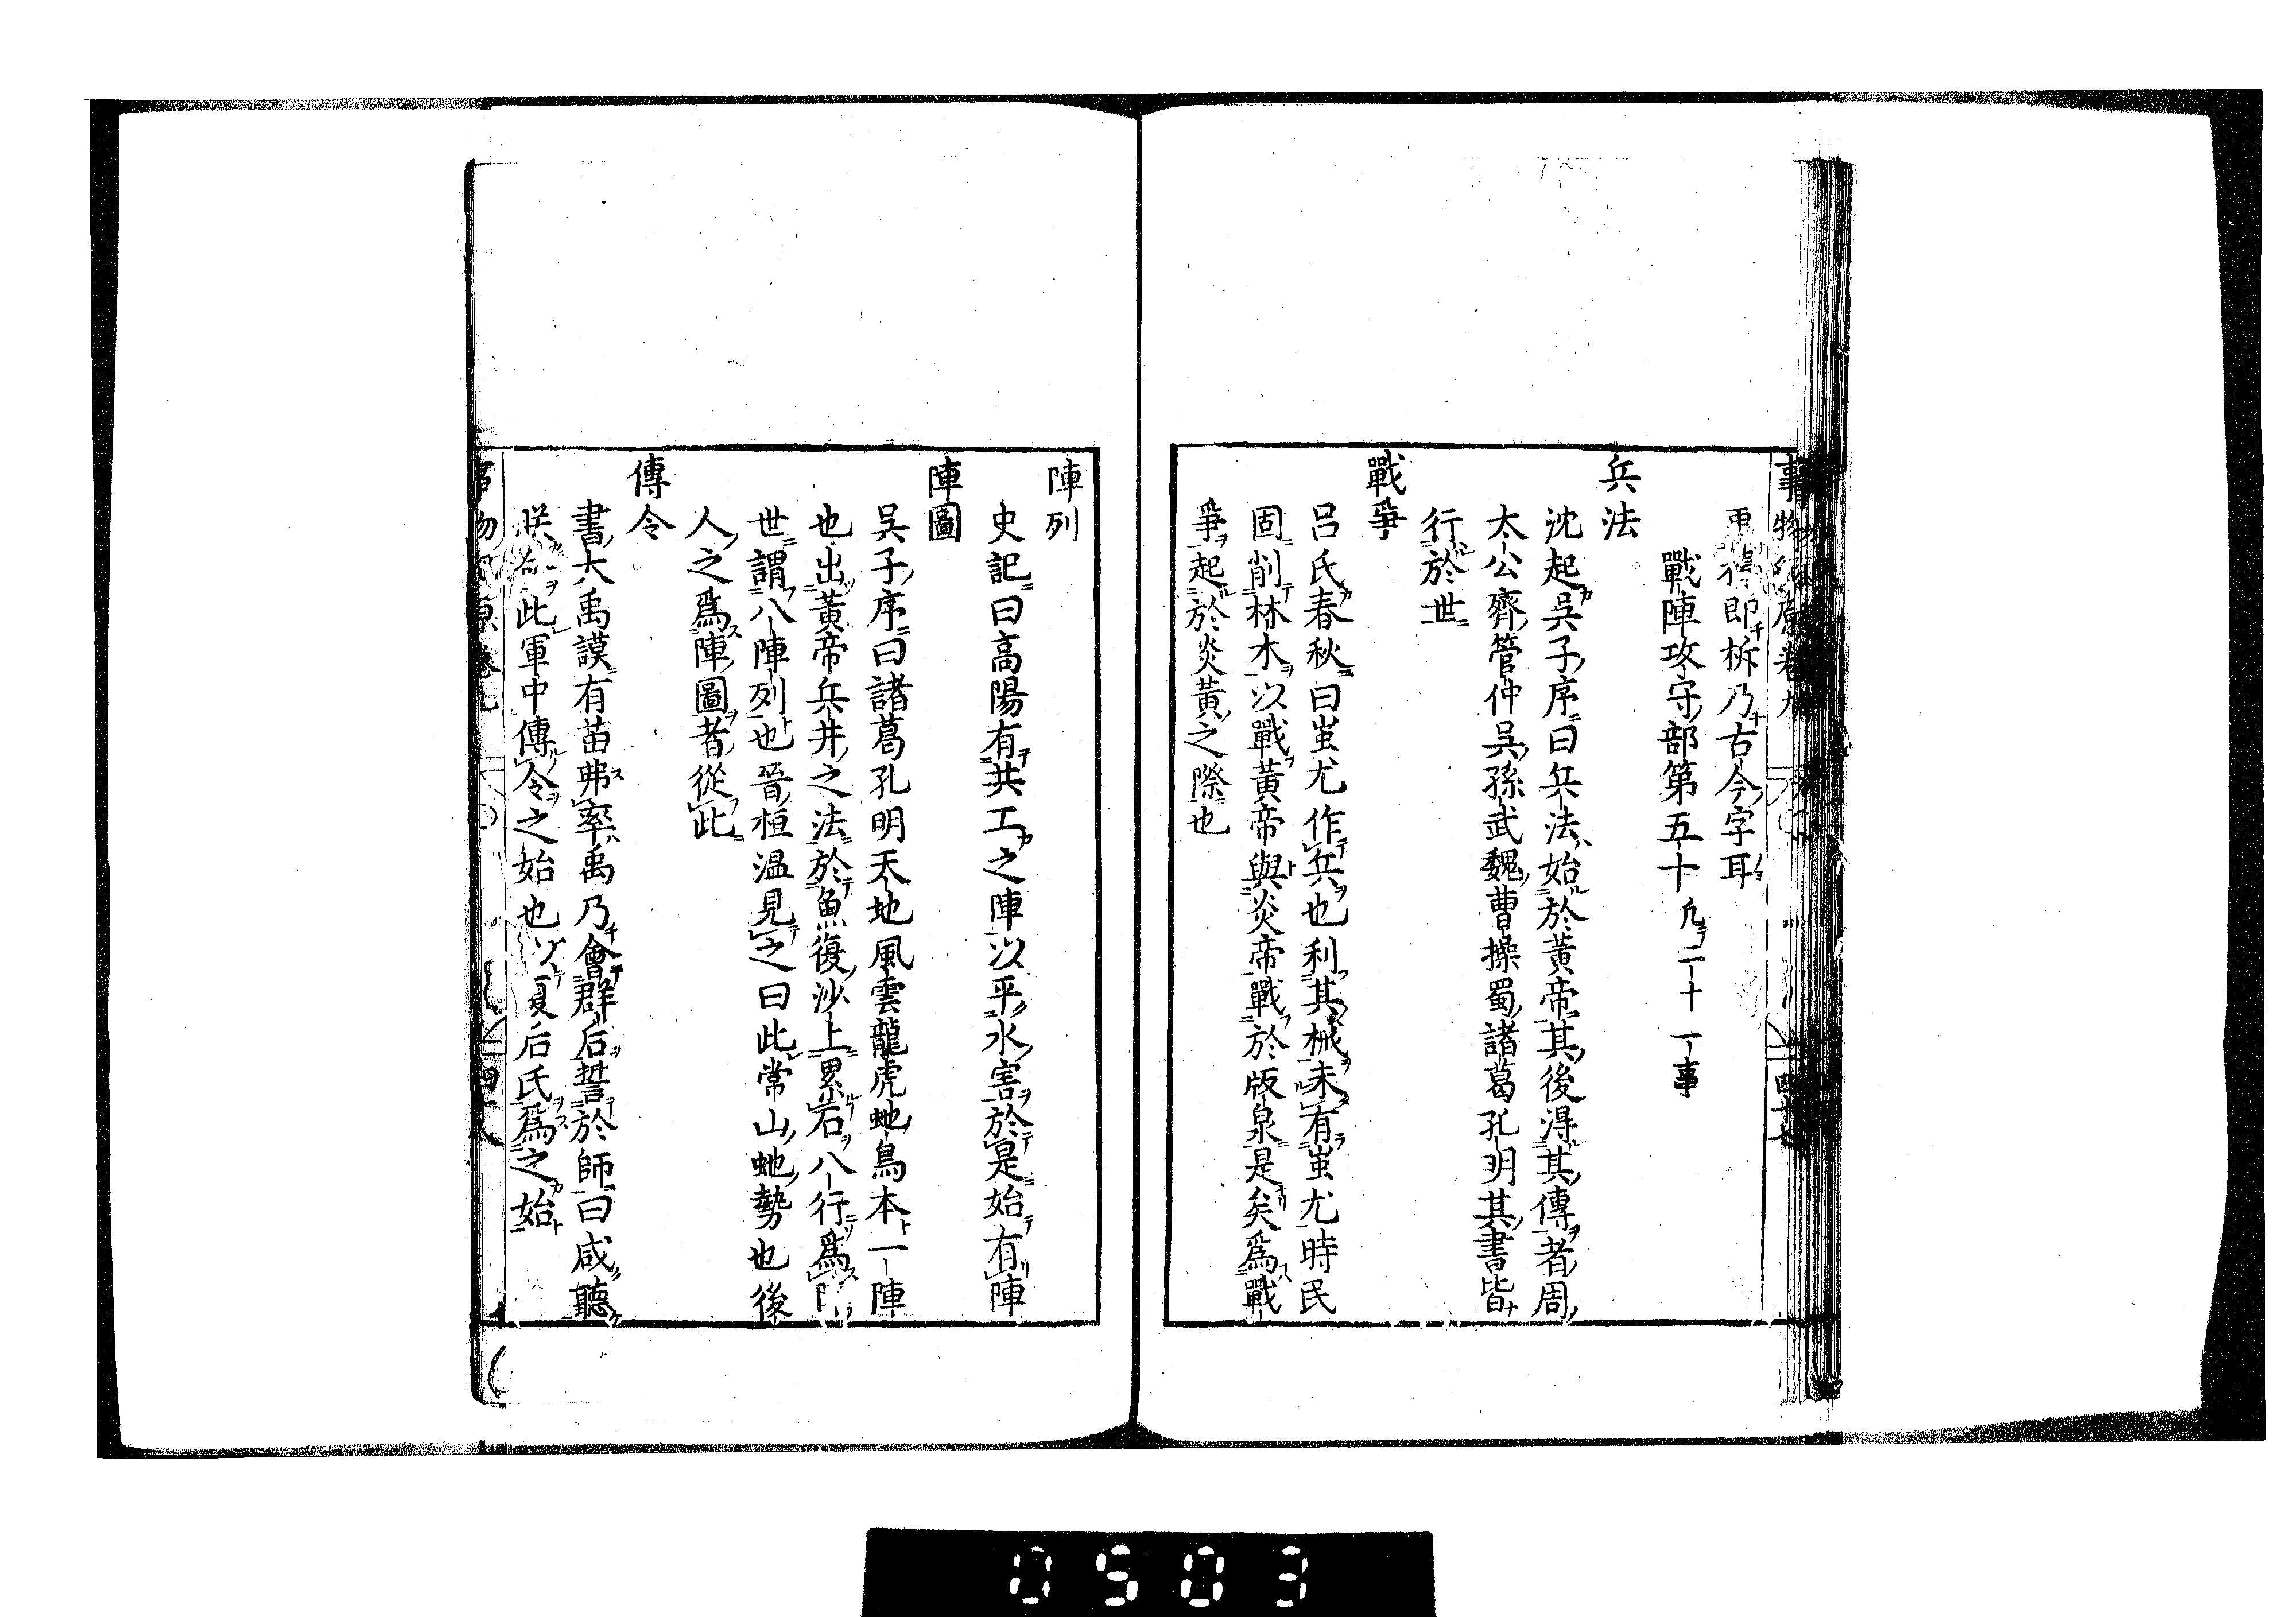 事物紀原卷九
即柝乃古今字耳
戰陣攻守部第五十 凡二十一事
兵法
沈起吳子序曰兵法始於黃帝其後淂其傳者周
太公齊管仲吳孫武魏曹操蜀諸葛孔明其書皆
行於世
戰爭
呂氏春秋曰蚩尤作兵也利其械未有蚩尤時民
固削林木以戰黃帝與炎帝戰於版泉是矣爲戰
爭起於炎黃之際也
陣列
史記曰高陽有共工之陣以平水害於是始有陣
陣圖
吳子序曰諸葛孔明天地風雲龍虎虵鳥本一陣
也出黃帝兵井之法於魚復沙上累石八行爲
世謂八陣列也晉桓溫見之曰此常山虵勢也後
人之爲陣圖者從此
傳令
書大禹謨有苗弗率禹乃會群后誓於師曰咸聽
朕命此軍中傳令之始也以夏后氏爲之始
0503